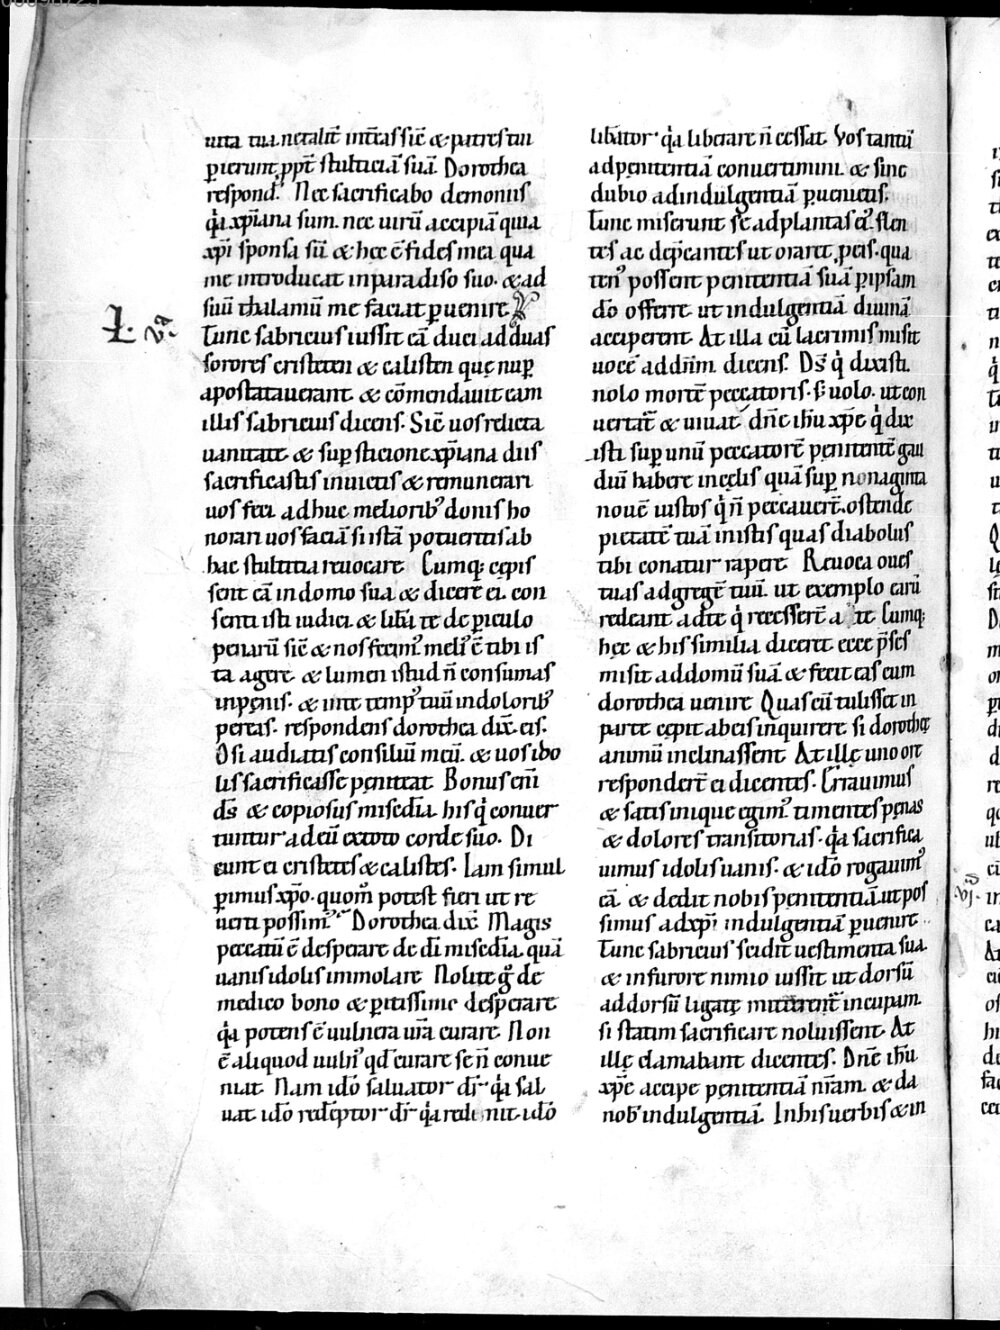 uita tua. ne talit̄ int̄eas sic̄ & patres tui
ꝑierunt ppt̄ stultic̄iā suā. Dorothea
respond̄. Nec sacrificabo demoniis
q̇a xp̄iana sum. nec uirū accipiā quia
xp̄i sponsa sū. & hec ē fides mea qua
me introducat in paradiso suo. & ad
suū thalamū me faciat ꝑuenire
L. va
Tunc fabricius iussit eā duci ad duas
sorores cristeten & calisten quę nuꝑ
apostatauerant & cōmendauit eam
illis fabricius dicens. Sic̄ uos relicta
uanitate & suꝑsticione xp̄iana diis
sacrificastis inuictis & remunerari
uos feci. adhuc meliorib; donis ho
norari uos faciā si istā potueritis ab
hac stultitia reuocare. Cumq; cępis
sent eā in domo sua & dicere ei. con
senti isti iudici & lib̄a te de ꝑiculo
penarū sic̄ & nos fecim̉. melỉ ē tibi is
ta agere & lumen istud n̄ consumas
in pęnis. & inte temp̉ tuū in dolorib̉
perias. respondens dorothea dix̄ eis.
O si audiatis consiliū meū. & uos ido
lis sacrificasse peniteat. Bonus eni
ds̄ & copiosus misc̄dia. his q̇ conuer
tuntur ad eū ex toto corde suo. Di
cunt ei cristetes & calistes. Iam simul
ꝑimus xp̄o. quom̄ potest fieri ut re
uerti possim̉. Dorothea dix̄. Magis
peccatū ē desperare de dī misc̄dia. quā
uanis idolis immolare. Nolite g̊ de
medico bono & ꝑitissime desperare
q̇a potens ē uulnera ur̄a curare. Non
ē aliquod uuln̉ qd̄ curare se n̄ conue
niat. Nam idō saluator dr̄. q̇a sal
uat idō redēptor dr̄. q̇a redimit. idō
lib̄ator. q̇a liberare n̄ cessat. Vos tantū
ad penitentiā conuertimini. & sine
dubio ad indulgentiā ꝑuenietis.
Tunc miserunt se ad plantas eỉ. flen
tes ac dep̄cantes ut oraret ꝓ eis. qua
ten̉ possent penitentiā suā ꝑ ipsam
dō offerre. ut indulgentiā diuinā
acciperent. At illa cū lacrimis misit
uocē ad dn̄m dicens. Ds̄ q̇ dixisti.
nolo mortē peccatoris. s; uolo. ut con
uertat̄ & uiuat. dn̄e ihū xp̄e q̇ dix
isti suꝑ unū peccatorē penitentē gau
diū habere in cęlis quā suꝑ nonaginta
nouē iustos q̇ n̄ peccauert̄. ostende
pietatē tuā in istis quas diabolus
tibi conatur rapere. Reuoca oues
tuas ad gregē tuū. ut exemplo earū
redeant ad te q̇ recesserē a te. Cumq;
hęc & his similia diceret ecce p̄ses
misit ad domū suā. & fecit eas cum
dorothea uenire. Quas cū tulisset in
parte cępit ab eis inquirere si dorothęę
animū inclinassent. At illę uno ore
responderē ei dicentes. Errauimus
& satis inique egim̉. timentes penas
& dolores transitorias. q̇a sacrifica
uimus idolis uanis. & idō rogauim̉
eā & dedit nobis penitentiā. ut pos
simus ad xp̄i indulgentiā ꝑuenire.
Tunc fabricius scidit uestimenta sua.
& in furore nimio iussit ut dorsū
ad dorsū ligatę mitterent̄ in cupam
si statim sacrificare noluissent. At
illę clamabant dicentes. Dn̄e ihū
xp̄e accipe penitentiā nr̄am. & da
nob̉ indulgentiā. In his uerbis & in